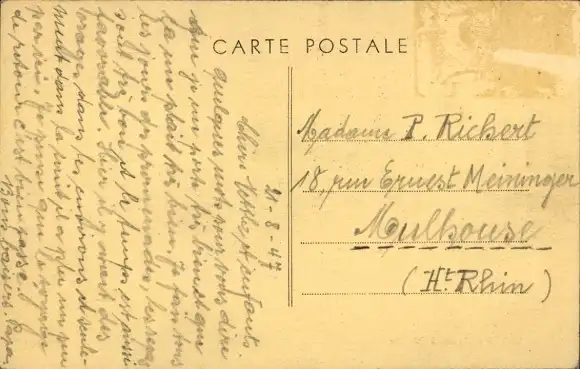 CARTE POSTALE
21-8-47
Chère Odette et enfants.
quelques mots pour vous dire
que je me porte très bien et que
ça me plaît très bien. Je fais tous
les jours des promenades, les repas
sont très bons et le temps est aussi
favorable. Hier il y avait des
orages dans les environs et seule-
ment dans la nuit il a plu un peu
par ici. Je pense que le voyage
de retour c'est bien passé.
Bons baisers. Papa.
Madame P. Richert
18, rue Ernest Meininger
Mulhouse
(Ht. Rhin)